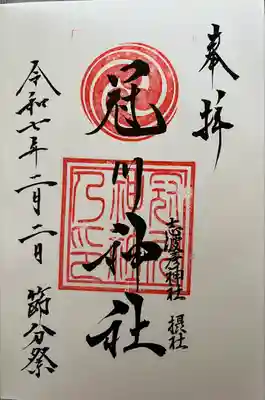 奉拝
志波彦神社 摂社
冠川神社
冠川神社乃印
令和七年二月二日 節分祭